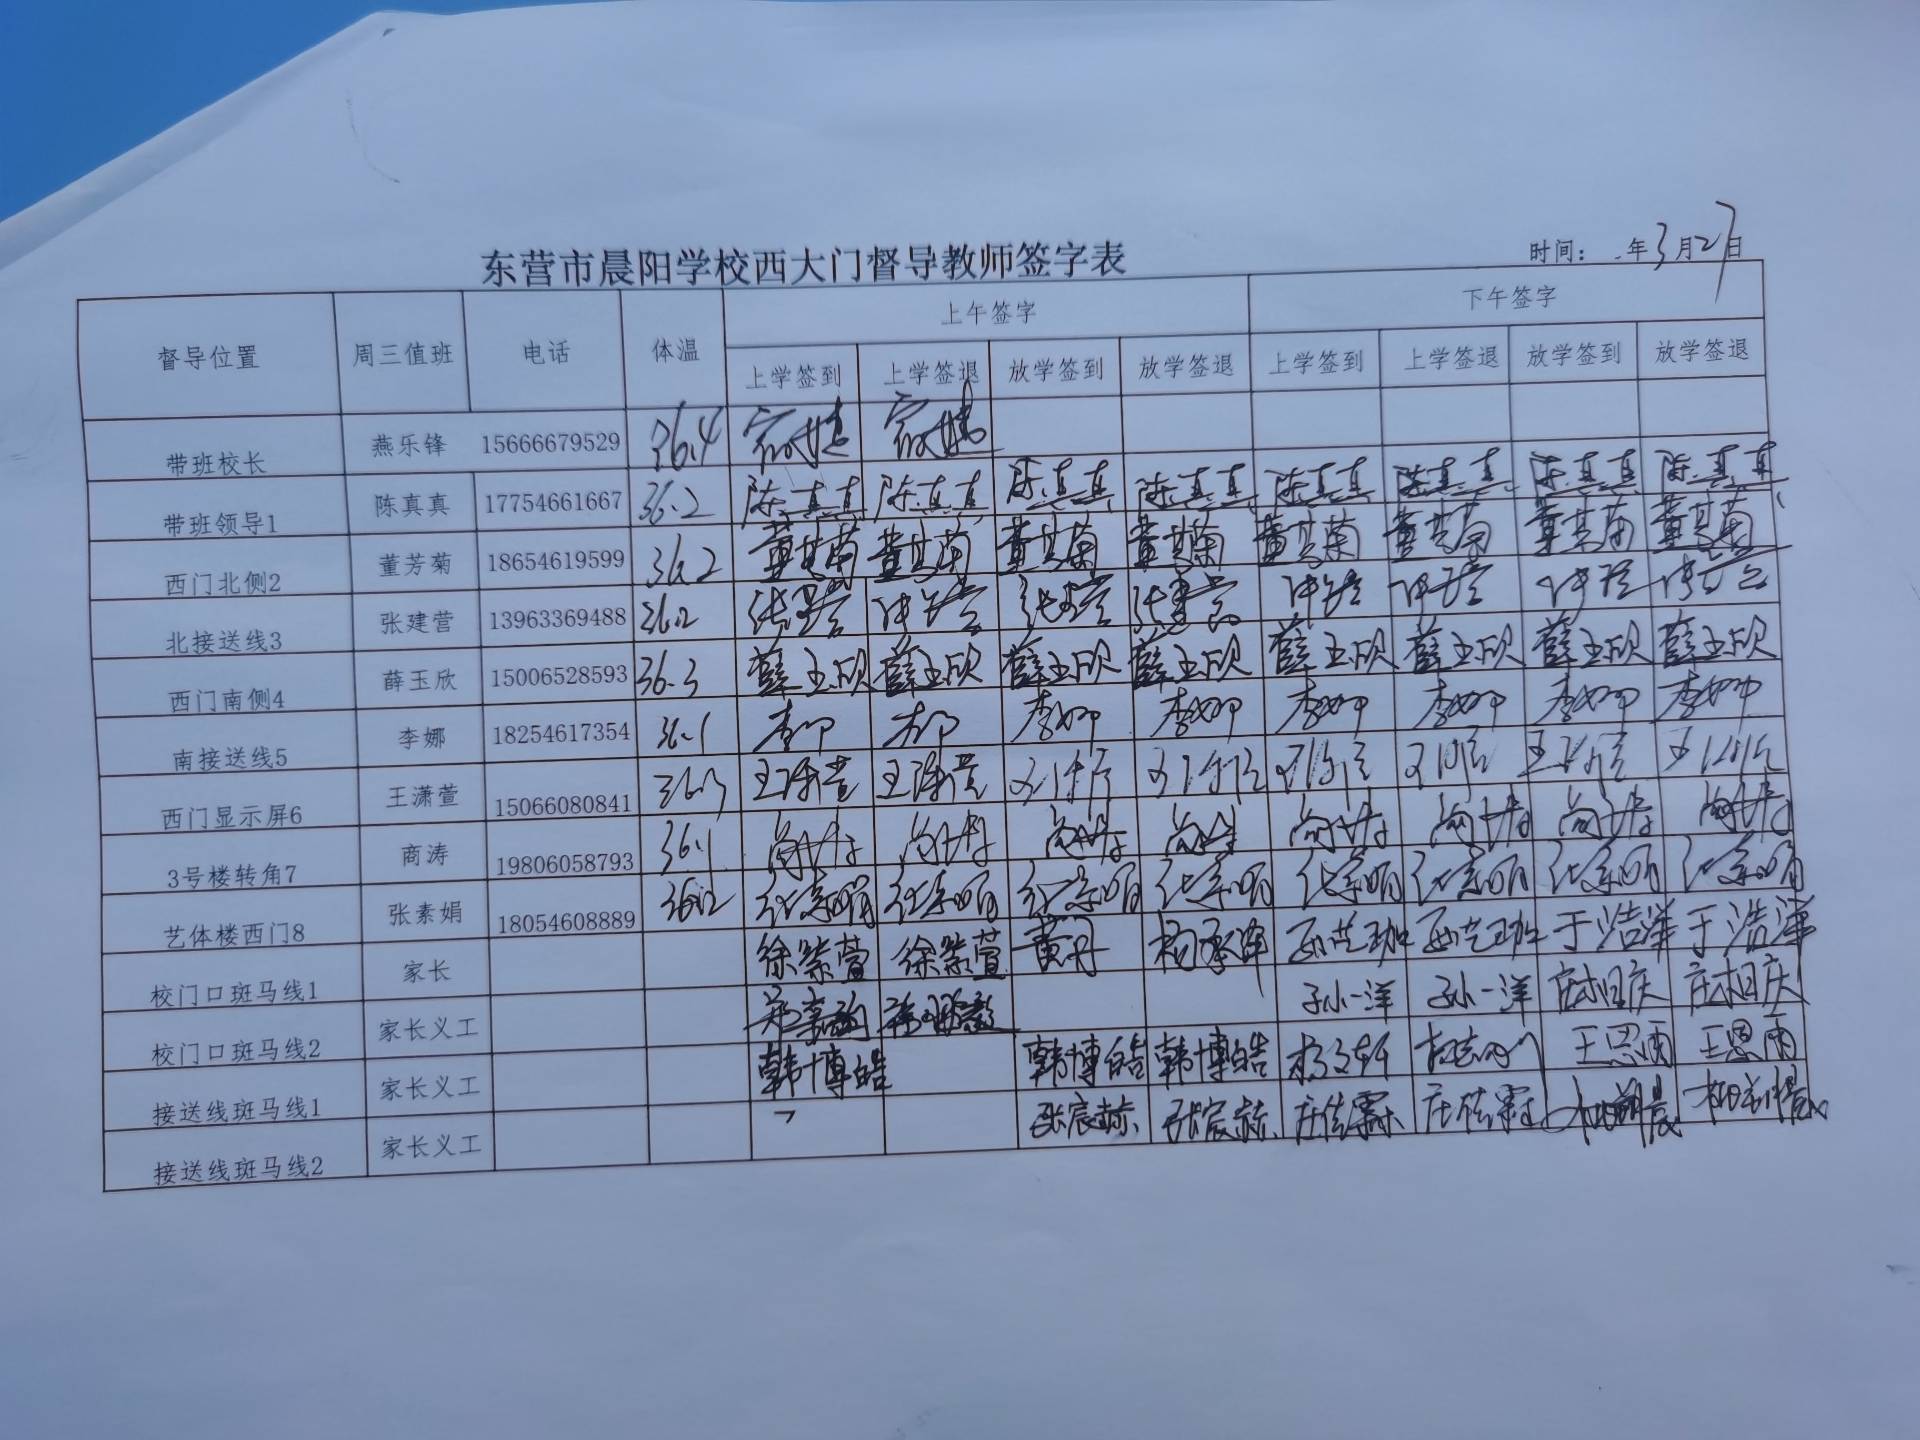 东营市晨阳学校西大门督导教师签字表
时间： 年3月27日
督导位置 周三值班 电话 体温 上午签字 下午签字
上学签到 上学签退 放学签到 放学签退 上学签到 上学签退 放学签到 放学签退
带班校长 燕乐锋 15666679529 36.4
带班领导1 陈真真 17754661667 36.2 陈真真 陈真真 陈真真 陈真真 陈真真 陈真真 陈真真 陈真真
西门北侧2 董芳菊 18654619599 36.2 董芳菊 董芳菊 董芳菊 董芳菊 董芳菊 董芳菊 董芳菊 董芳菊
北接送线3 张建营 13963369488 36.2 张建营 张建营 张建营 张建营 张建营 张建营 张建营 张建营
西门南侧4 薛玉欣 15006528593 36.3 薛玉欣 薛玉欣 薛玉欣 薛玉欣 薛玉欣 薛玉欣 薛玉欣 薛玉欣
南接送线5 李娜 18254617354 36.1 李娜 李娜 李娜 李娜 李娜 李娜 李娜 李娜
西门显示屏6 王潇萱 15066080841 36.3 王潇萱 王潇萱
3号楼转角7 商涛 19806058793 36.1 商涛 商涛 商涛 商涛 商涛 商涛 商涛 商涛
艺体楼西门8 张素娟 18054608889 36.2 张素娟 张素娟 张素娟 张素娟 张素娟 张素娟 张素娟 张素娟
校门口斑马线1 家长 徐紫萱 徐紫萱 黄丹 于浩洋 于浩洋
校门口斑马线2 家长义工 孙一洋 孙一洋
接送线斑马线1 家长义工 韩博皓 韩博皓 韩博皓 王恩雨 王恩雨
接送线斑马线2 家长义工 张宸赫 张宸赫